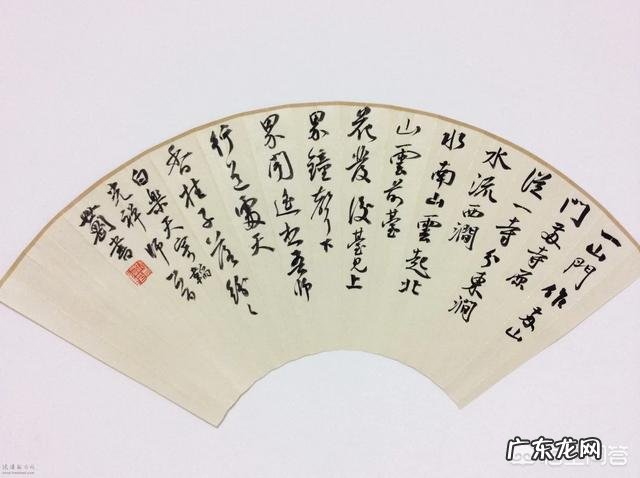 一山門作兩山
門兩寺原
從一寺分東澗
水流西澗
水南山雲起北
山雲前臺
花發後臺見上
界鐘聲下
界聞遙想吾師
行道處天
香桂子落紛々
白樂天寄韜
光禪師
書
广东龙网